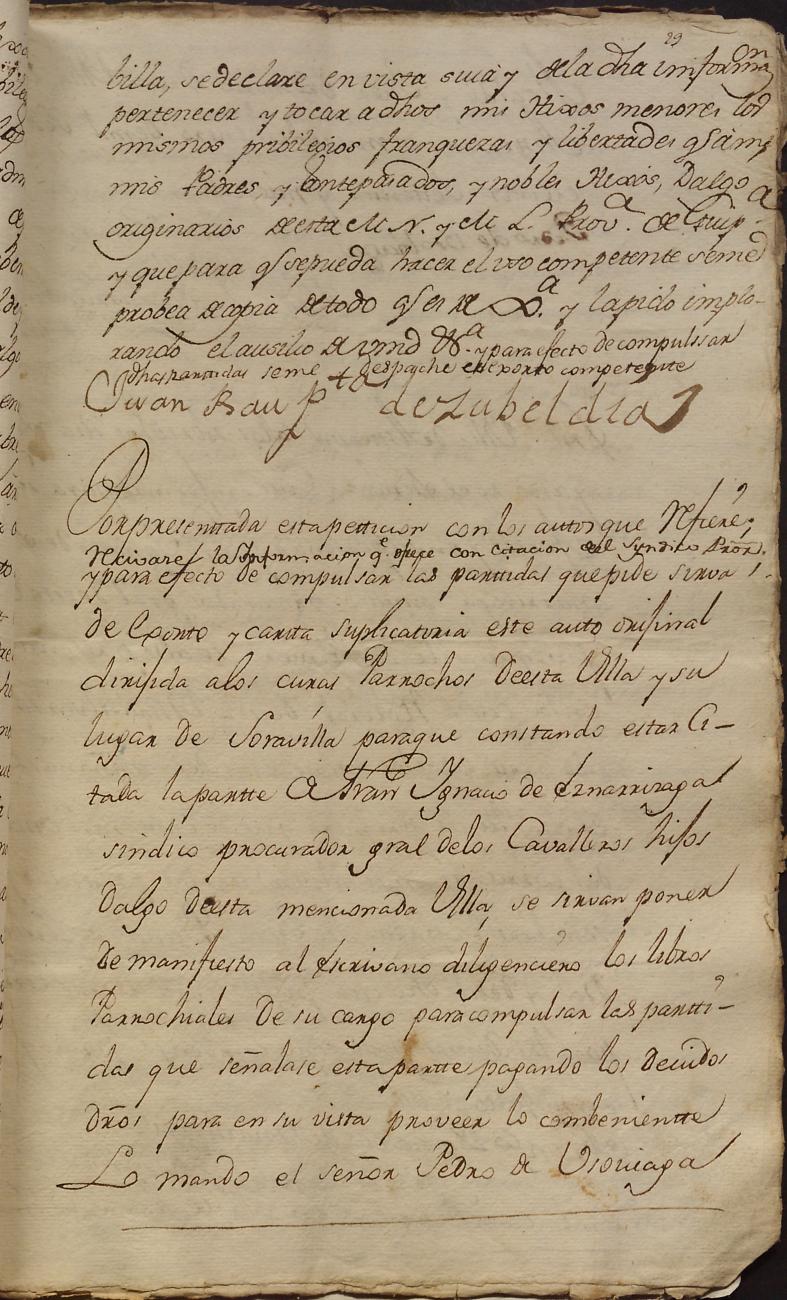 29
billa, se declare en vista suia y de la dha informaon
pertenecer y tocar a dhos mis Hixos menores los
mismos pribilegios franquezas y libertades q̃ â mi,
mis Padres, y Antepasados, y nobles Hixos, Dalgo
originarios de esta M N. y M L. Prova. de Guipa.
y que para q̃ se pueda hacer el uso competente se me d
probea de copia de todo q̃ es de Xa. y la pido implo-
rando el ausilio de vmd &a. y para efecto de compulssar
dhas parttidas se me despache exsorto competente
Juan Baupta de Zubeldia
Por presenttada esta pettizion con los autos que refiere;
recivase la Informacion qe ofrece con citacion del Syndico Pror.
y para efecto de compulsar las parttidas que pide sirva
de Exorto y cartta suplicatoria este auto orijinal
dirijida a los curas Parrochos de esta Villa y su
lugar de Soravilla para que constando estar Ci-
tada la partte de Frann Ygnacio de Eznarrizaga
sindico procurador gral de los Cavalleros hijos
dalgo de esta mencionada Villa, se sirvan poner
de manifiesto al Escrivano diligenciero los libros
Parrochiales de su cargo para compulsar las partti-
das que señalase esta partte pagando los devidos
dr̃os para en su vista proveer lo combenientte
Lo mando el señor Pedro de Usoviaga